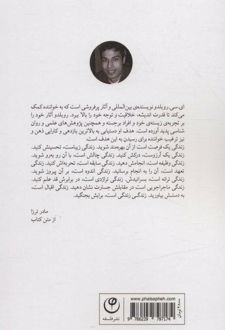 ای.سی. روبلدو نویسنده‌ی بین‌المللی و آثار پرفروشی است که به خواننده کمک
می‌کند تا قدرت اندیشه، خلاقیت و توجه خود را بالا ببرد. روبلدو آثار خود را
بر تجربه‌ی زیسته‌ی خود و افراد برجسته و همچنین پژوهش‌های علمی و روان
شناسی پدید آورده است. هدف او دستیابی به بالاترین بازدهی و کارایی ذهن و
نیز ترغیب خواننده برای رسیدن به این هدف است.
زندگی یک فرصت است از آن بهره‌مند شوید. زندگی زیباست، تحسینش کنید.
زندگی یک آرزوست، درکش کنید. زندگی چالش است، با آن روبه‌رو شوید.
زندگی وظیفه است، انجامش دهید. زندگی سابقه است، تجربه‌اش کنید. زندگی
تعهد است، آن را به انجام برسانید. زندگی اندوه است، بر آن پیروز شوید.
زندگی ترانه است، بسرائیدش. زندگی تراژدی است، در برابرش قد علم کنید.
زندگی ماجراجویی است در مقابلش جسارت نشان دهید. زندگی اقبال است،
به دستش بیاورید. زندگی زندگی است، برایش بجنگید.
مادر ترزا
از متن کتاب
www.phalsapheh.com
نشر فلسفه